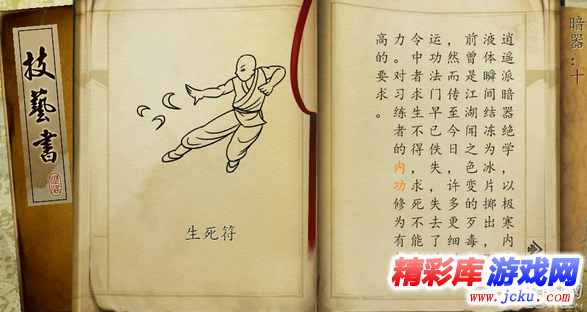 暗器：十
逍遥派暗器绝学，以极寒内
液体瞬间结冻为冰片掷出，
前曾是江湖闻之色变的歹毒
，然而传至今日，许多更细
运功法门早已佚失，失去了
令中者求生不得，求死不能
力。对习练者的内功修为有
高的要求。
生死符
技藝書
精彩库游戏网
www.jcku.com